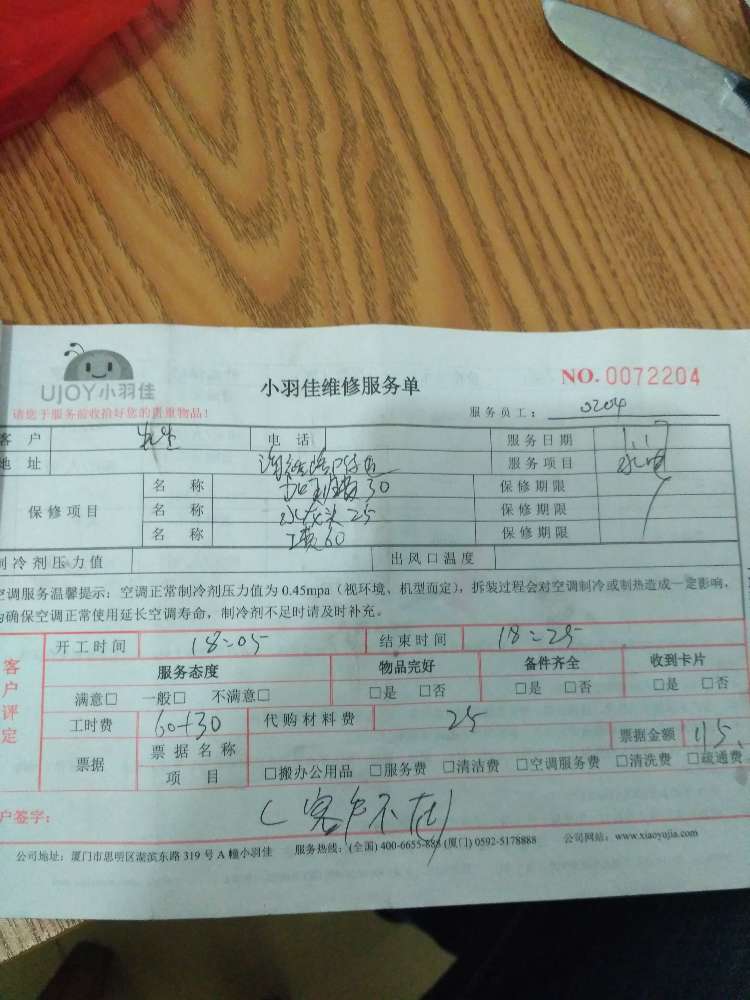 UJOY小羽佳
小羽佳维修服务单
NO. 0072204
请您于服务前收拾好您的贵重物品!
服务员工: 0204
客 户 电 话 服务日期
地 址 服务项目 水电
保修项目 名 称 30 保修期限
名 称 水龙头 25 保修期限
名 称 工费60 保修期限
制冷剂压力值 出风口温度
空调服务温馨提示: 空调正常制冷剂压力值为 0.45mpa (视环境、机型而定), 拆装过程会对空调制冷或制热造成一定影响,
为确保空调正常使用延长空调寿命, 制冷剂不足时请及时补充。
客户评定
开工时间 18:05 结束时间 18:25
服务态度 物品完好 备件齐全 收到卡片
满意□ 一般□ 不满意□ □是 □否 □是 □否 □是 □否
工时费 60+30 代购材料费 25
票据 票据名称 票据金额 115
项 目 □搬办公用品 □服务费 □清洁费 □空调服务费 □清洗费 □疏通费
户签字: (客户不在)
公司地址: 厦门市思明区湖滨东路 319 号 A 幢小羽佳 服务热线: (全国) 400-6655-888 (厦门) 0592-5178888 公司网站: www.xiaoyujia.com